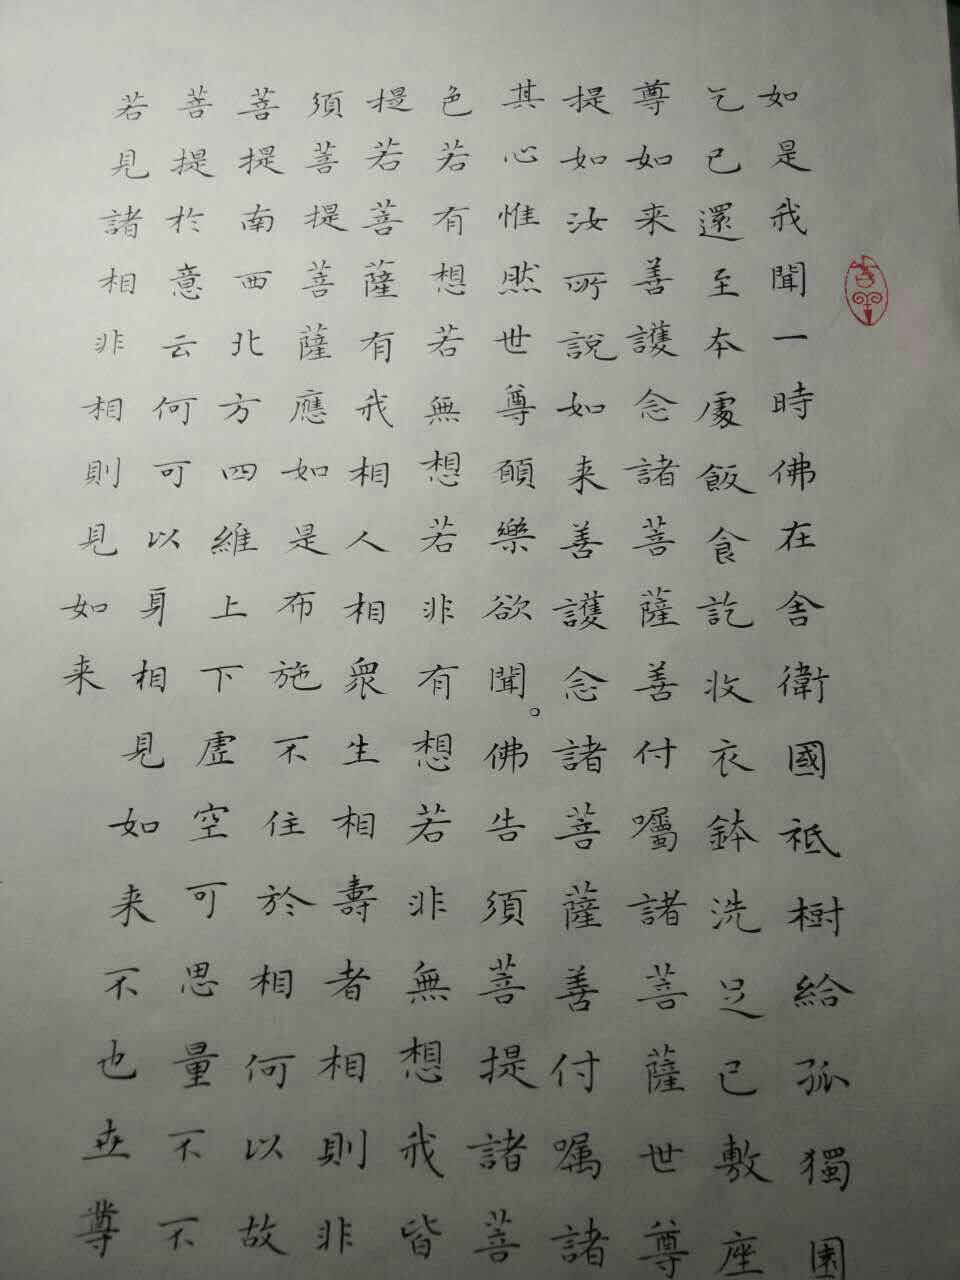 如是我聞一時佛在舍衛國祗樹給孤獨園
乞已還至本處飯食訖收衣鉢洗足已敷座
尊如来善護念諸菩薩善付囑諸菩薩世尊
提如汝所說如来善護念諸菩薩善付嘱諸
其心惟然世尊願樂欲聞。佛告須菩提諸菩
色若有想若無想若非有想若非無想我皆
提若菩薩有我相人相衆生相壽者相則非
須菩提菩薩應如是布施不住於相何以故
菩提南西北方四維上下虛空可思量不不
菩提於意云何可以身相見如来不也世尊
若見諸相非相則見如来